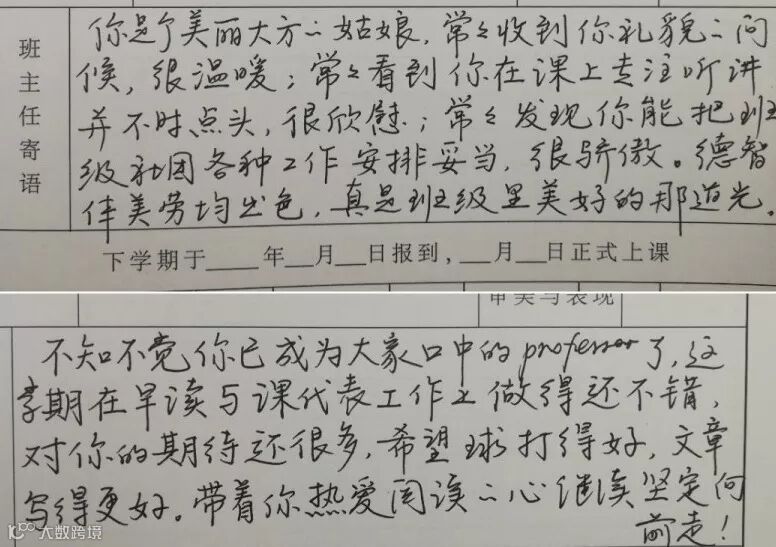 班主任寄语
你是个美丽大方的姑娘，常常收到你礼貌的问
候，很温暖；常常看到你在课上专注听讲
并不时点头，很欣慰；常常发现你能把班
级社团各种工作安排妥当，很骄傲。德智
体美劳均出色，真是班级里美好的那道光。
下学期于____年__月__日报到，__月__日正式上课
审美与表现
不知不觉你已成为大家口中的professor了，这
学期在早读与课代表工作上做得还不错，
对你的期待还很多，希望球打得好，文章
写得更好。带着你热爱阅读的心继续坚定向
前走！
大数跨境